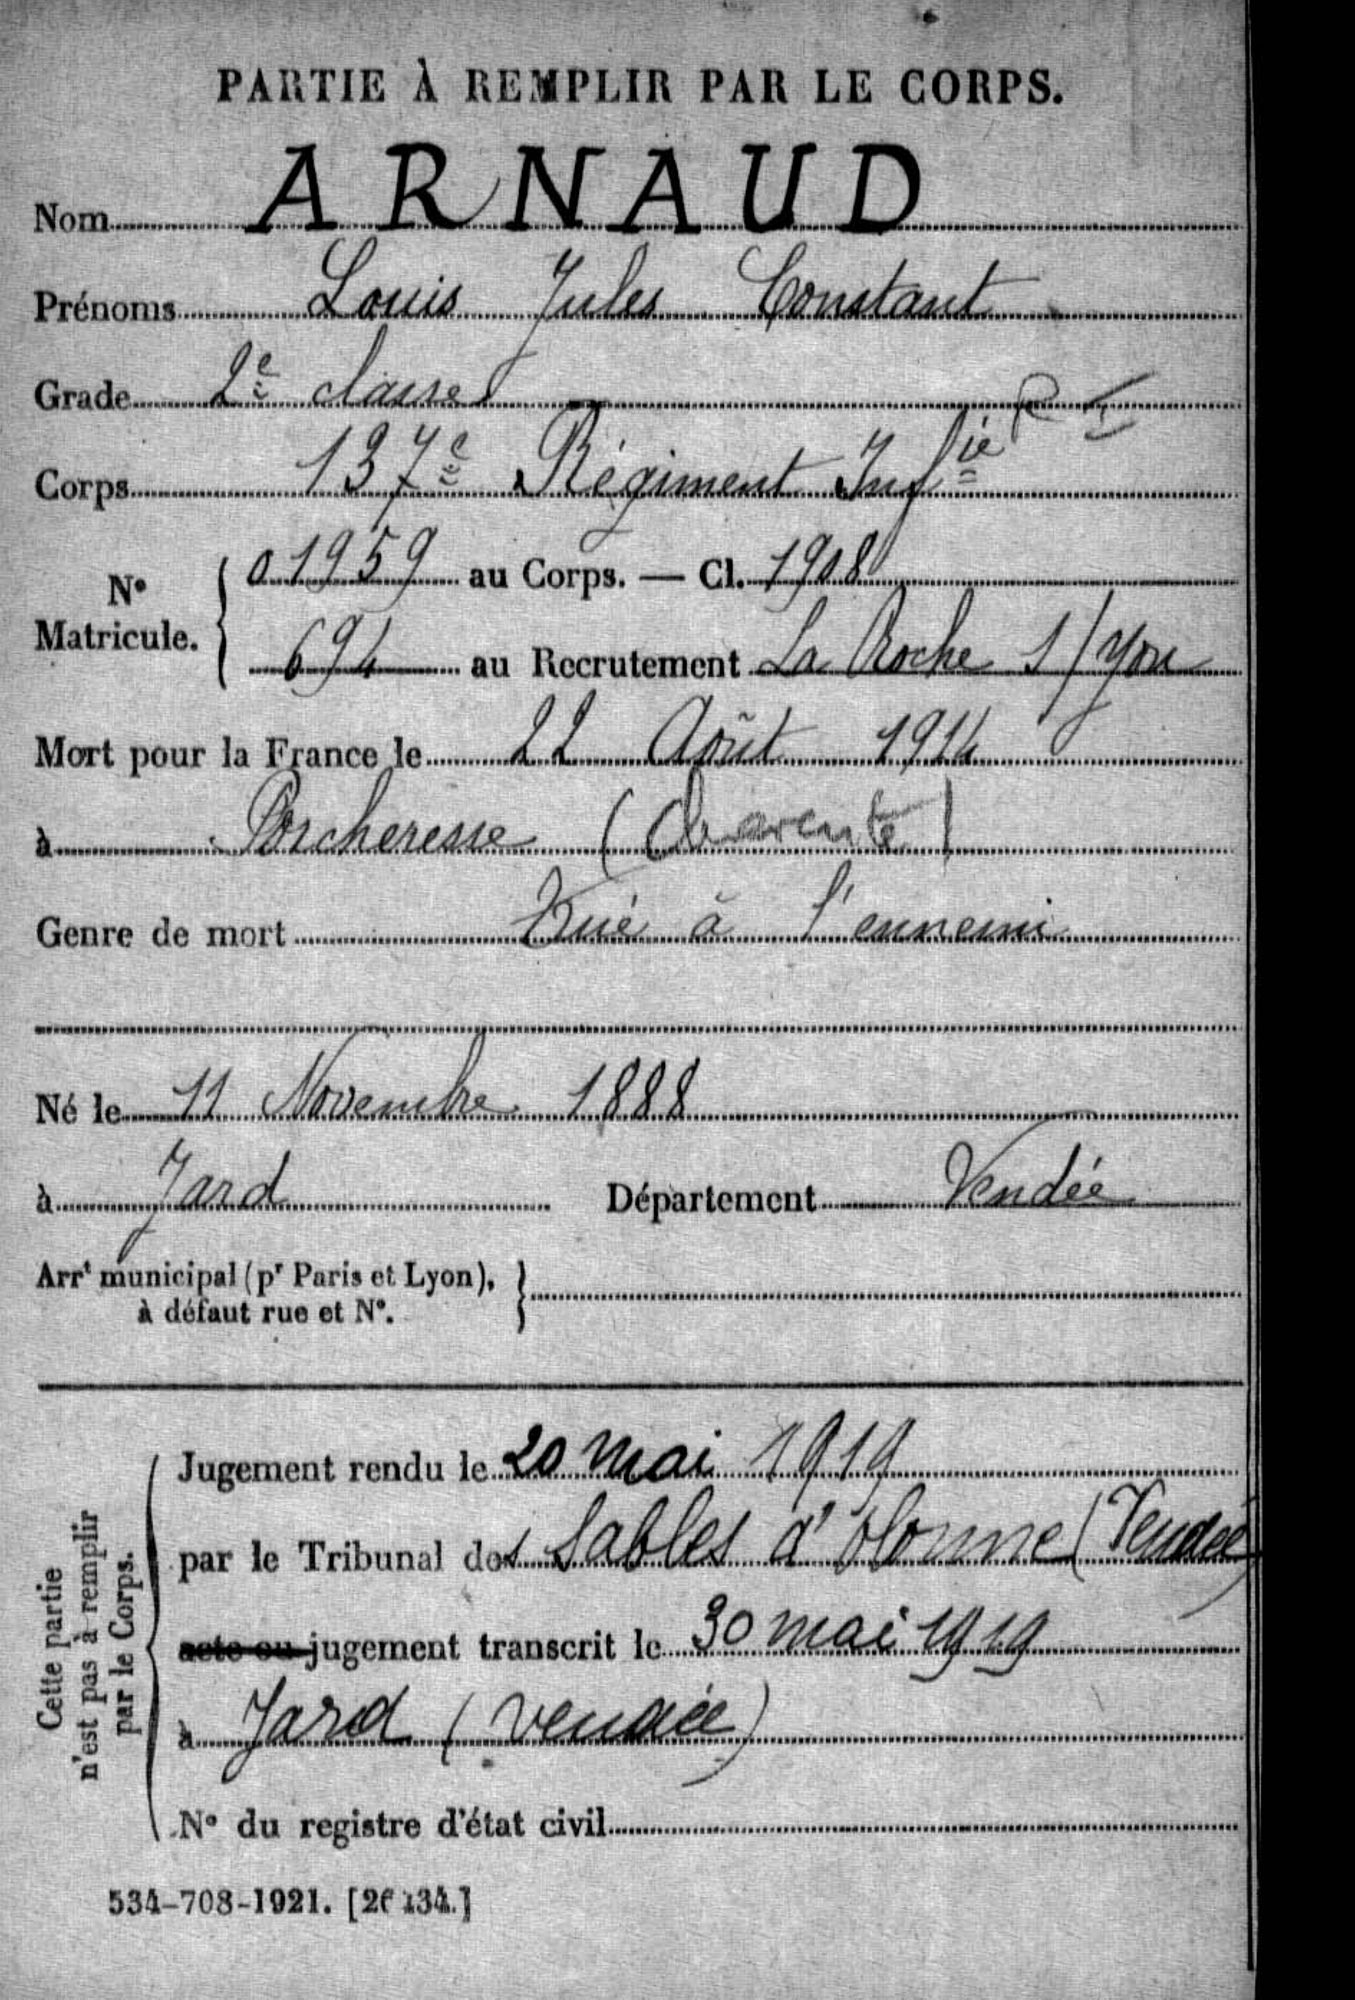 PARTIE À REMPLIR PAR LE CORPS.
Nom ARNAUD
Prénoms Louis Jules Constant
Grade 2e classe
Corps 137e Régiment Infie
N° Matricule. 01959 au Corps. — Cl. 1908
694 au Recrutement La Roche s/yon
Mort pour la France le 22 Août 1914
à Porcheresse (Charente)
Genre de mort Tué à l'ennemi
Né le 11 Novembre 1888
à Jard Département Vendée
Arrt municipal (pr Paris et Lyon),
à défaut rue et N°.
Cette partie
n'est pas à remplir
par le Corps.
Jugement rendu le 20 mai 1919
par le Tribunal des Sables d'Olonne (Vendée)
acte ou jugement transcrit le 30 mai 1919
à Jard (vendée)
N° du registre d'état civil
534-708-1921. [26134.]